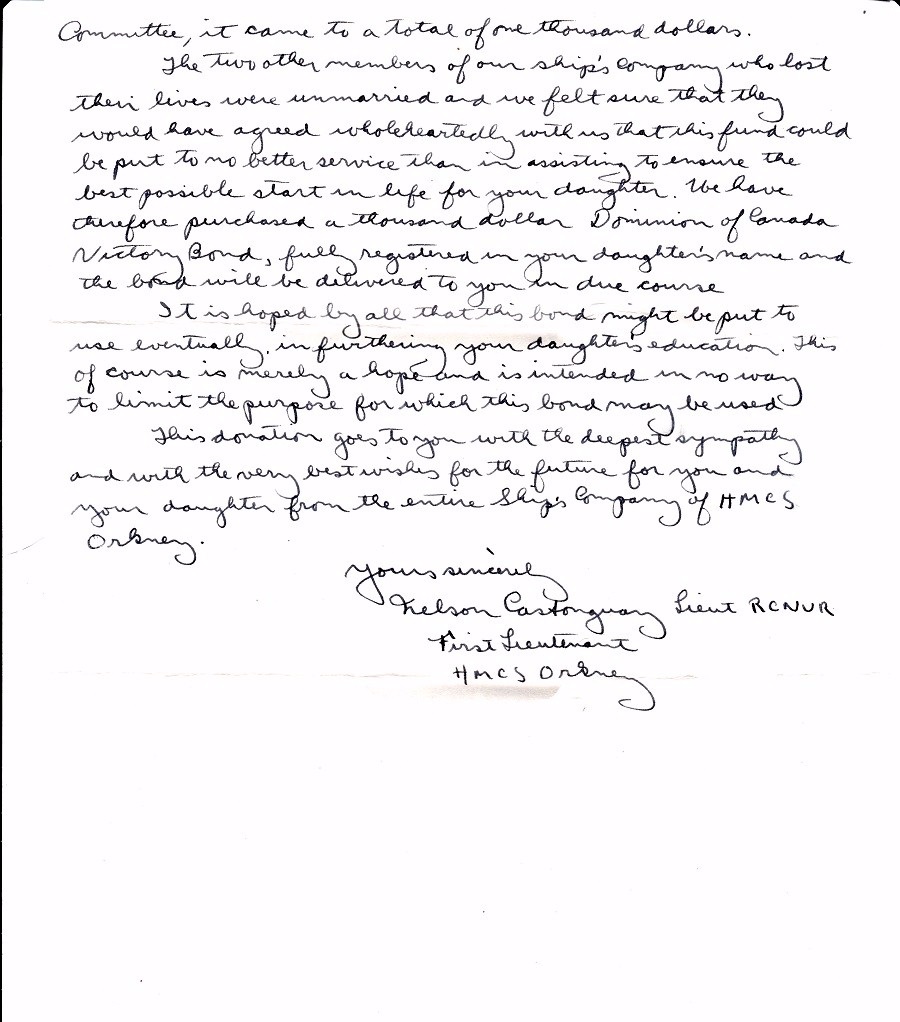 Committee, it came to a total of one thousand dollars.
The two other members of our ship's company who lost
their lives were unmarried and we felt sure that they
would have agreed wholeheartedly with us that this fund could
be put to no better service than in assisting to ensure the
best possible start in life for your daughter. We have
therefore purchased a thousand dollar Dominion of Canada
Victory Bond, fully registered in your daughter's name and
the bond will be delivered to you in due course
It is hoped by all that this bond might be put to
use eventually, in furthering your daughter's education. This
of course is merely a hope and is intended in no way
to limit the purpose for which this bond may be used
This donation goes to you with the deepest sympathy
and with the very best wishes for the future for you and
your daughter from the entire Ship's Company of HMCS
Orkney.
Yours sincerely
Nelson Castonguay Lieut RCNVR
First Lieutenant
HMCS Orkney